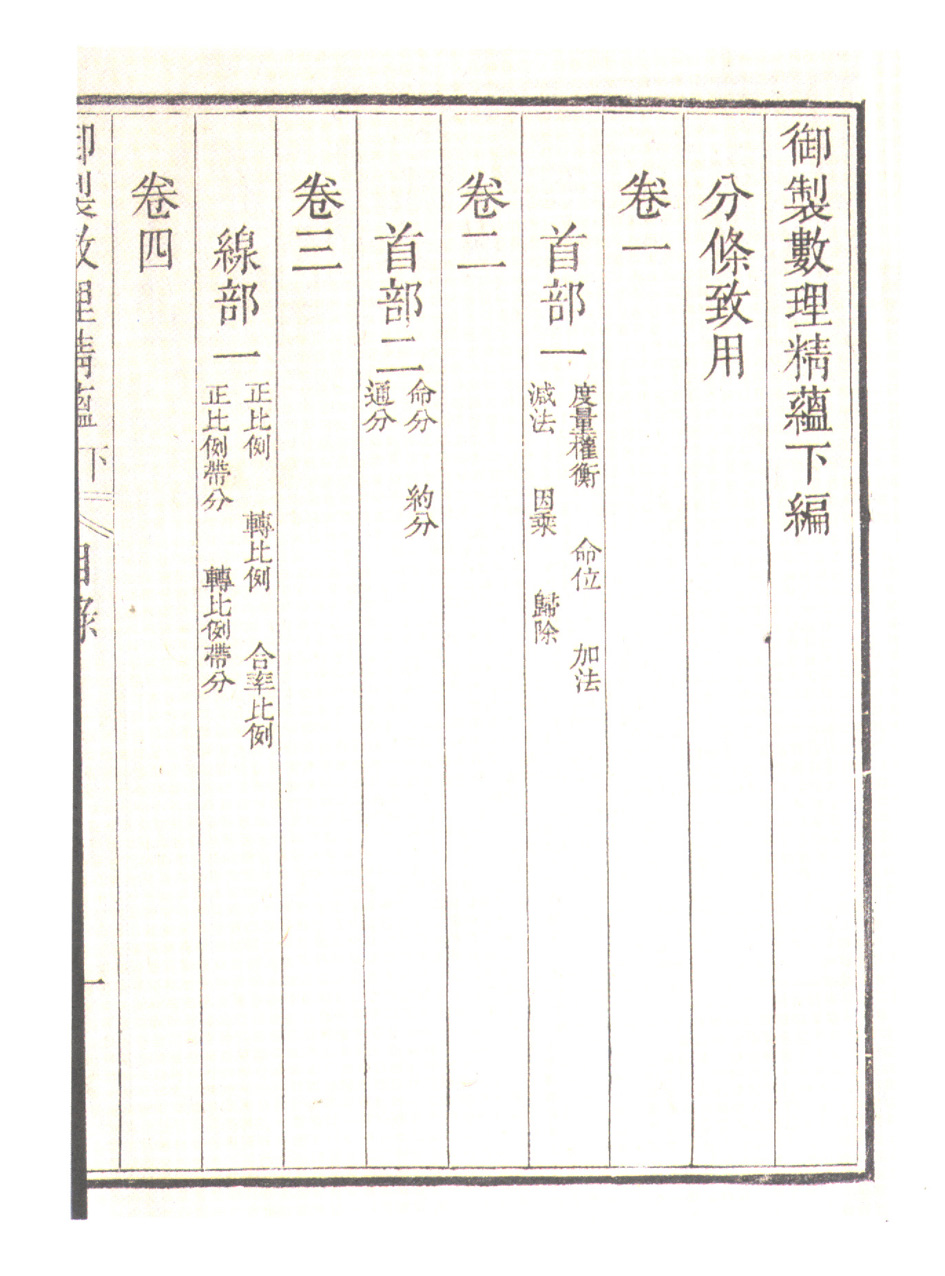 御製數理精蘊下編
分條致用
卷一
首部一
度量權衡 命位 加法
減法 因乘 歸除
卷二
首部二
命分 約分
通分
卷三
線部一
正比例 轉比例 合率比例
正比例帶分 轉比例帶分
卷四
御製數理精蘊 下 目錄 一